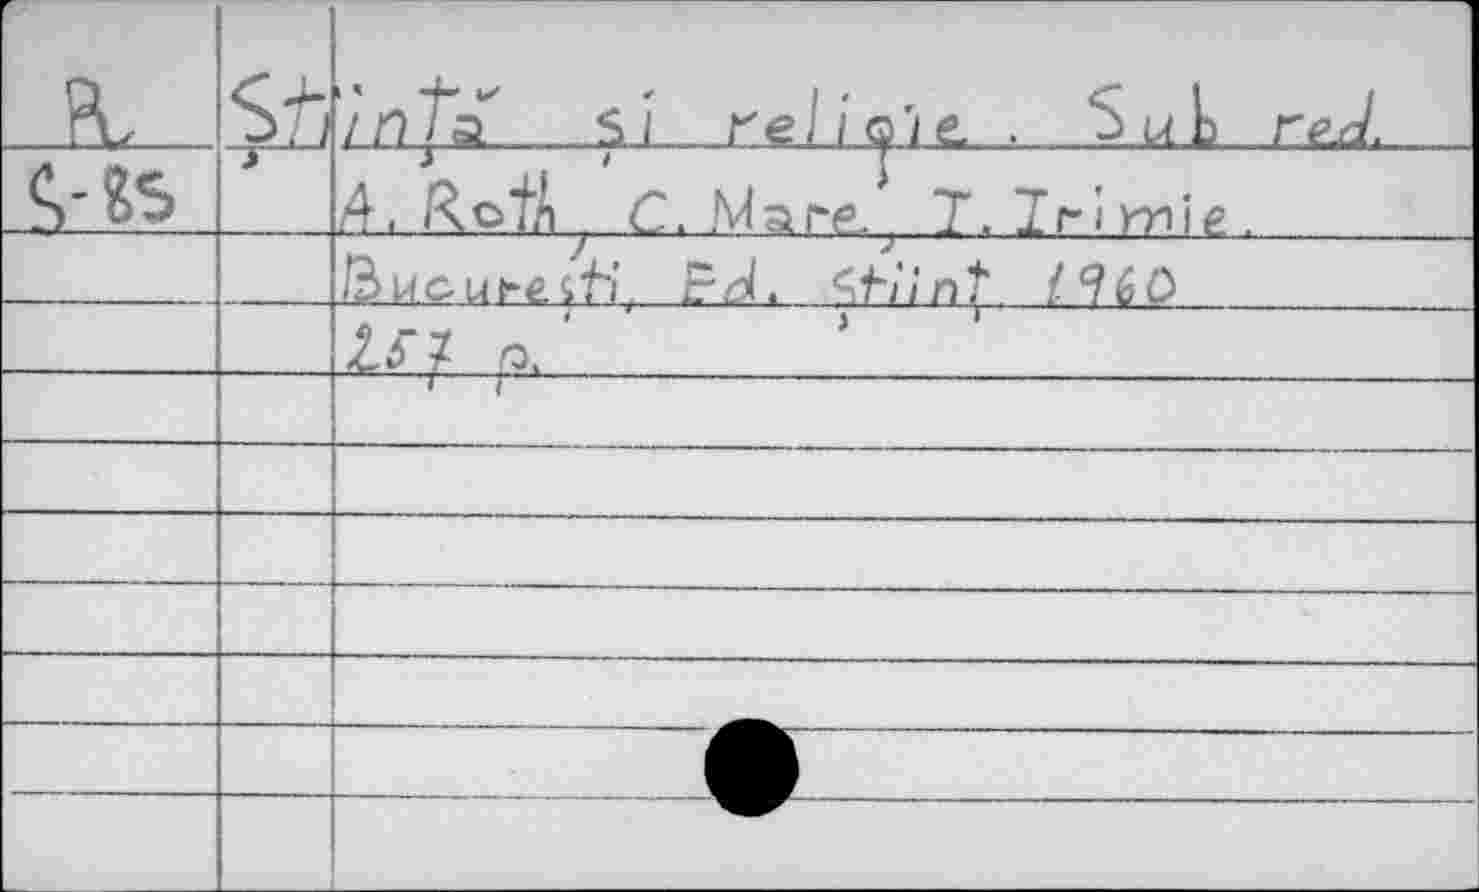 R Ştiinţă şi religie. Sub red.
Ş-85 A. Roth, C. Mare, I. Irimie.
Bucureşti, Ed. Ştiinţ. 1960
257 p.